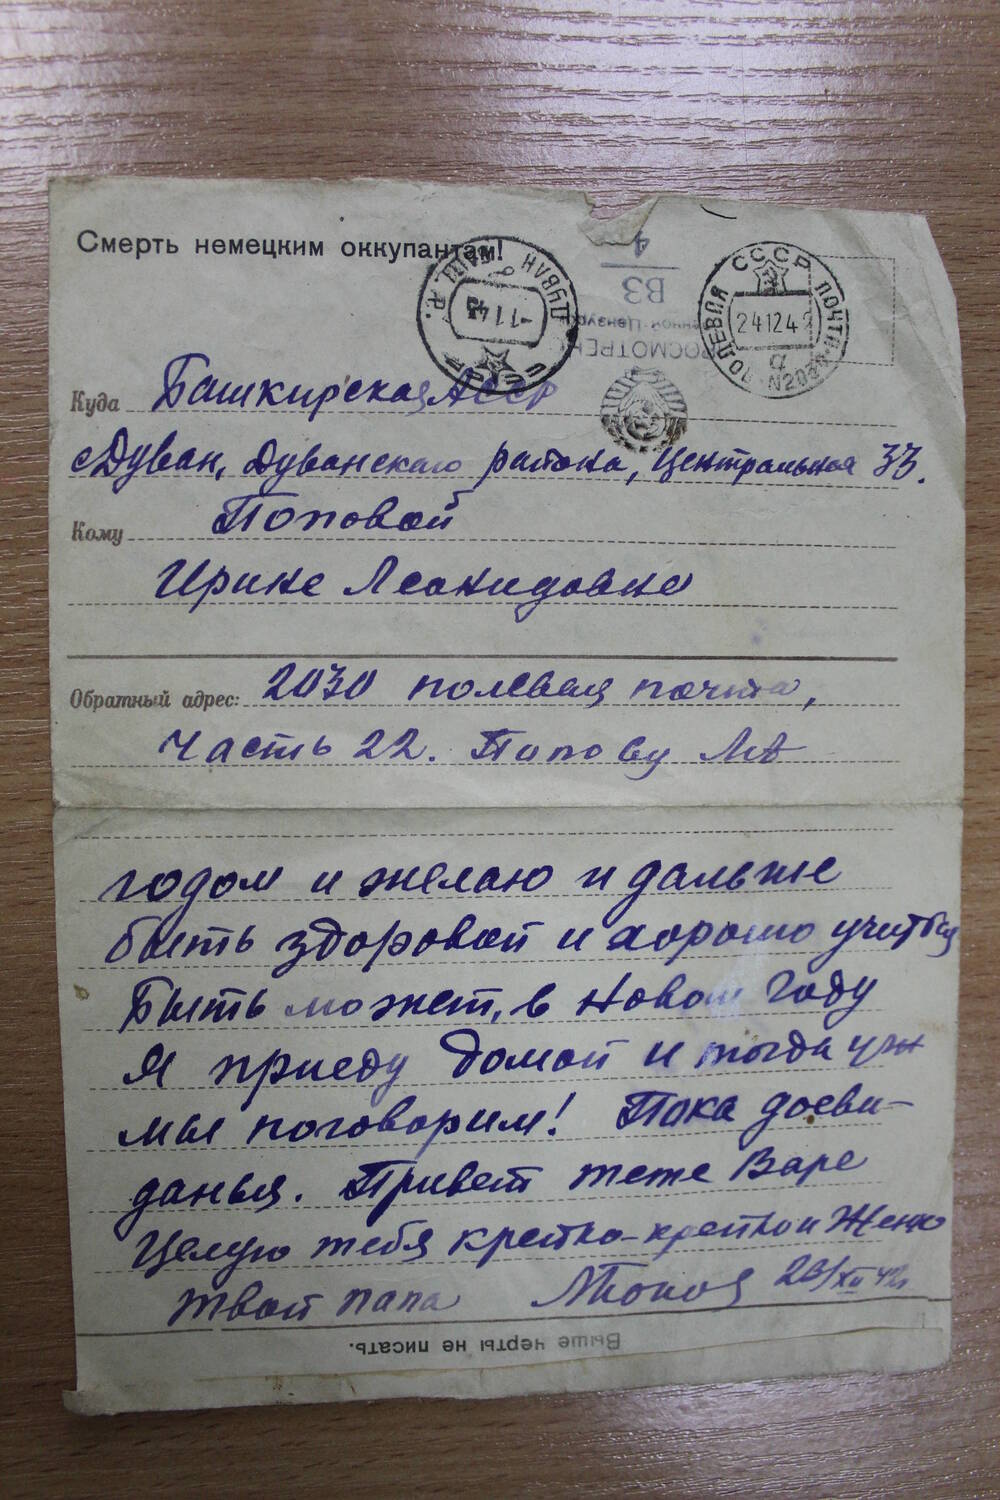 Смерть немецким оккупантам!
СССР
ДУВАН БАШ
-7.1.43
4
ВЗ
ПРОСМОТРЕНО
Военной Цензурой
СССР
ПОЛЕВАЯ ПОЧТА
24.12.42
а
N2030
Куда Башкирская АССР
с Дуван, Дуванского района, Центральная 33.
Кому Поповой
Ирине Леонидовне
Обратный адрес: 2030 полевая почта,
Часть 22. Попову
годом и желаю и дальше
быть здоровой и хорошо учиться
Быть может, в Новом году
Я приеду домой и тогда уж
мы поговорим! Пока досви-
данья. Привет тете Варе
Целую тебя крепко-крепко и Женю
твой папа ЛПопов 23/XII 42г
Выше черты не писать.